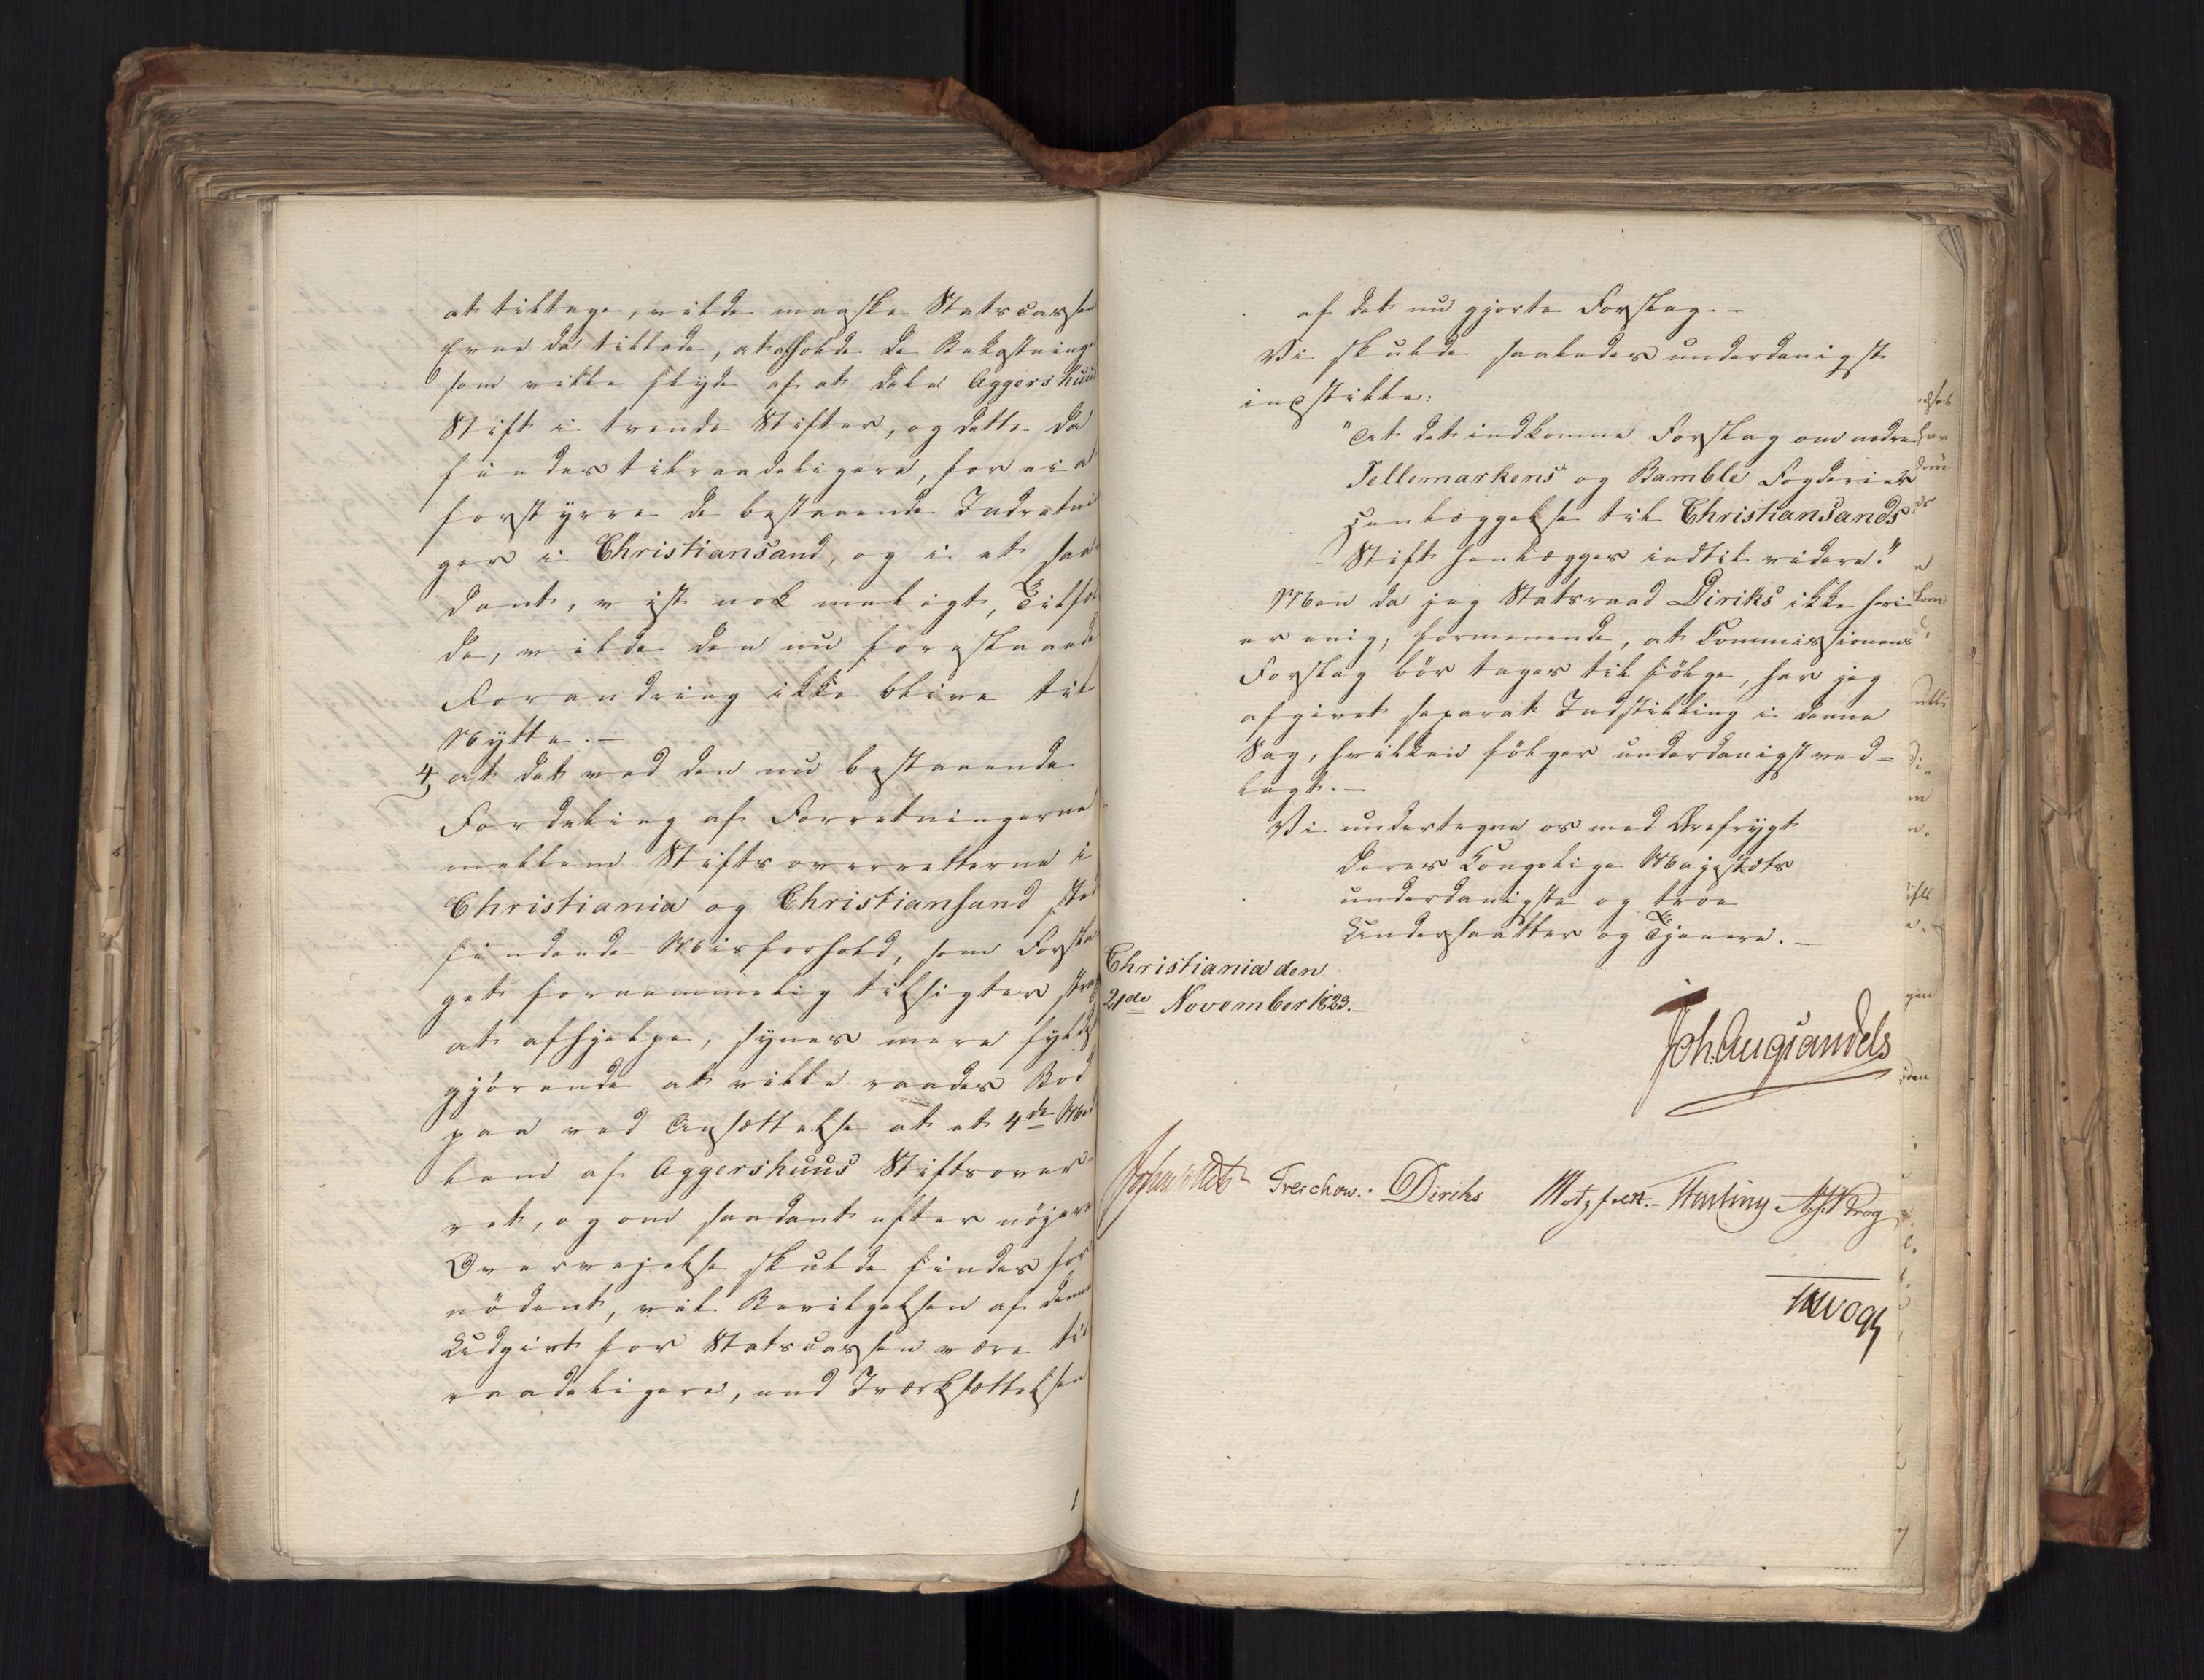 at tiltage, vilde maaske Statscassen
Evne da tillade, at afholde de Bekostninge
som ville flyde af at dele Aggershuus
Stift i tvende Stifter, og dette da
findes tilraadeligere, for ei a
forstyrre de bestaaende Indretni
ger i Christiansand, og i et saa
dant, vist nok muligt, Tilfæl
de, vilde den nu forestaaende
Forandring ikke blive til
Nytte. —
4, at det ved den nu bestaaende
Fordeling af Forretningerne
mellem Stiftsoverretterne i
Christiania og Christiansand sted
findende Misforhold, som Forsla
get fornemmelig tilsigter
at afhjelpe, synes mere fyldest
gjörende at ville raades Bod
paa ved Ansættelse at et 4de Med
lem af Aggershuus Stiftsover
ret, og om saadant efter nöjere
Overvejelse skulde findes for
nödent, vil Bevilgelsen af denne
Udgivt for Statscassen være til
raadeligere, end Iværksættelsen
af det nu gjorte Forslag. —
Vi skulde saaledes underdanigst
indstille:
"At det indkomne Forslag om nedre
Tellemarkens og Bamble Fogderiers
Henlæggelse til Christiansands
Stift henlægges indtil videre."
Men da jeg Statsraad Diriks ikke heri
er enig, formenende, at Commissionens
Forslag bör tages til fölge, har jeg
afgivet separat Indstilling i denne
Sag, hvilken fölger underdanigst ved=
lagt. —
Vi undertegne os med Ærefrygt
Deres Kongelige Majestæts
underdanigste og troe
Undersaatter og Tjenere. —
Christiania den
21de November 1823. —
Joh. Aug Sandels
Treschow. Diriks Motzfeldt. Fasting Krog
Vogt